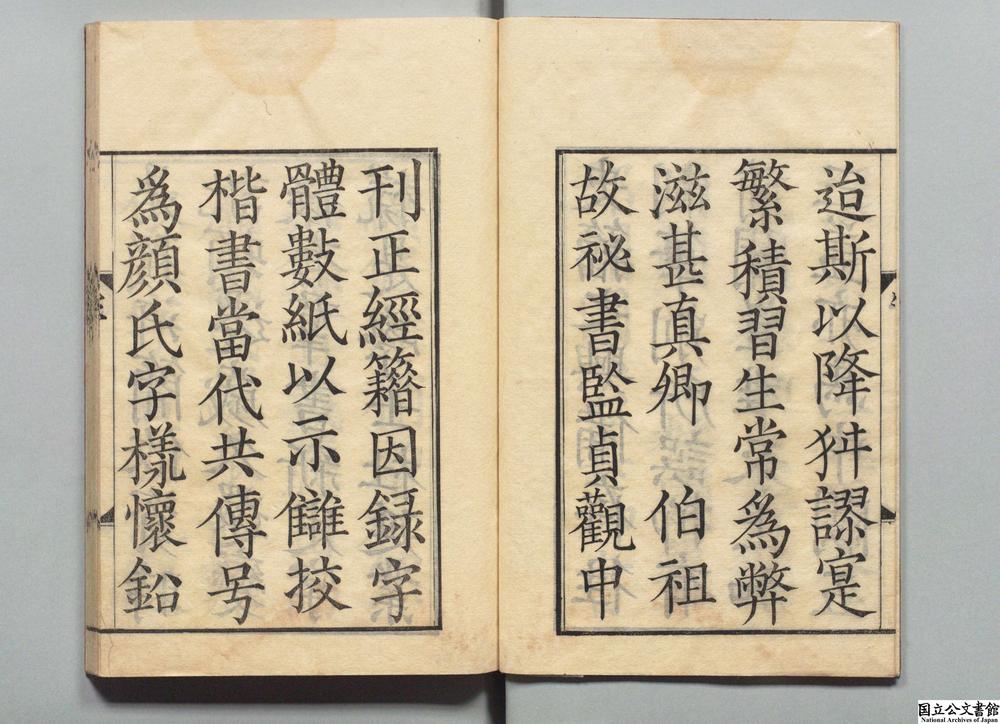 迨斯以降舛謬寔
繁積習生常爲弊
滋甚真卿　伯祖
故祕書監貞觀中
刊正經籍因録字
體數紙以示讎挍
楷書當代共傳号
爲顔氏字樣懷鉛
国立公文書館
National Archives of Japan